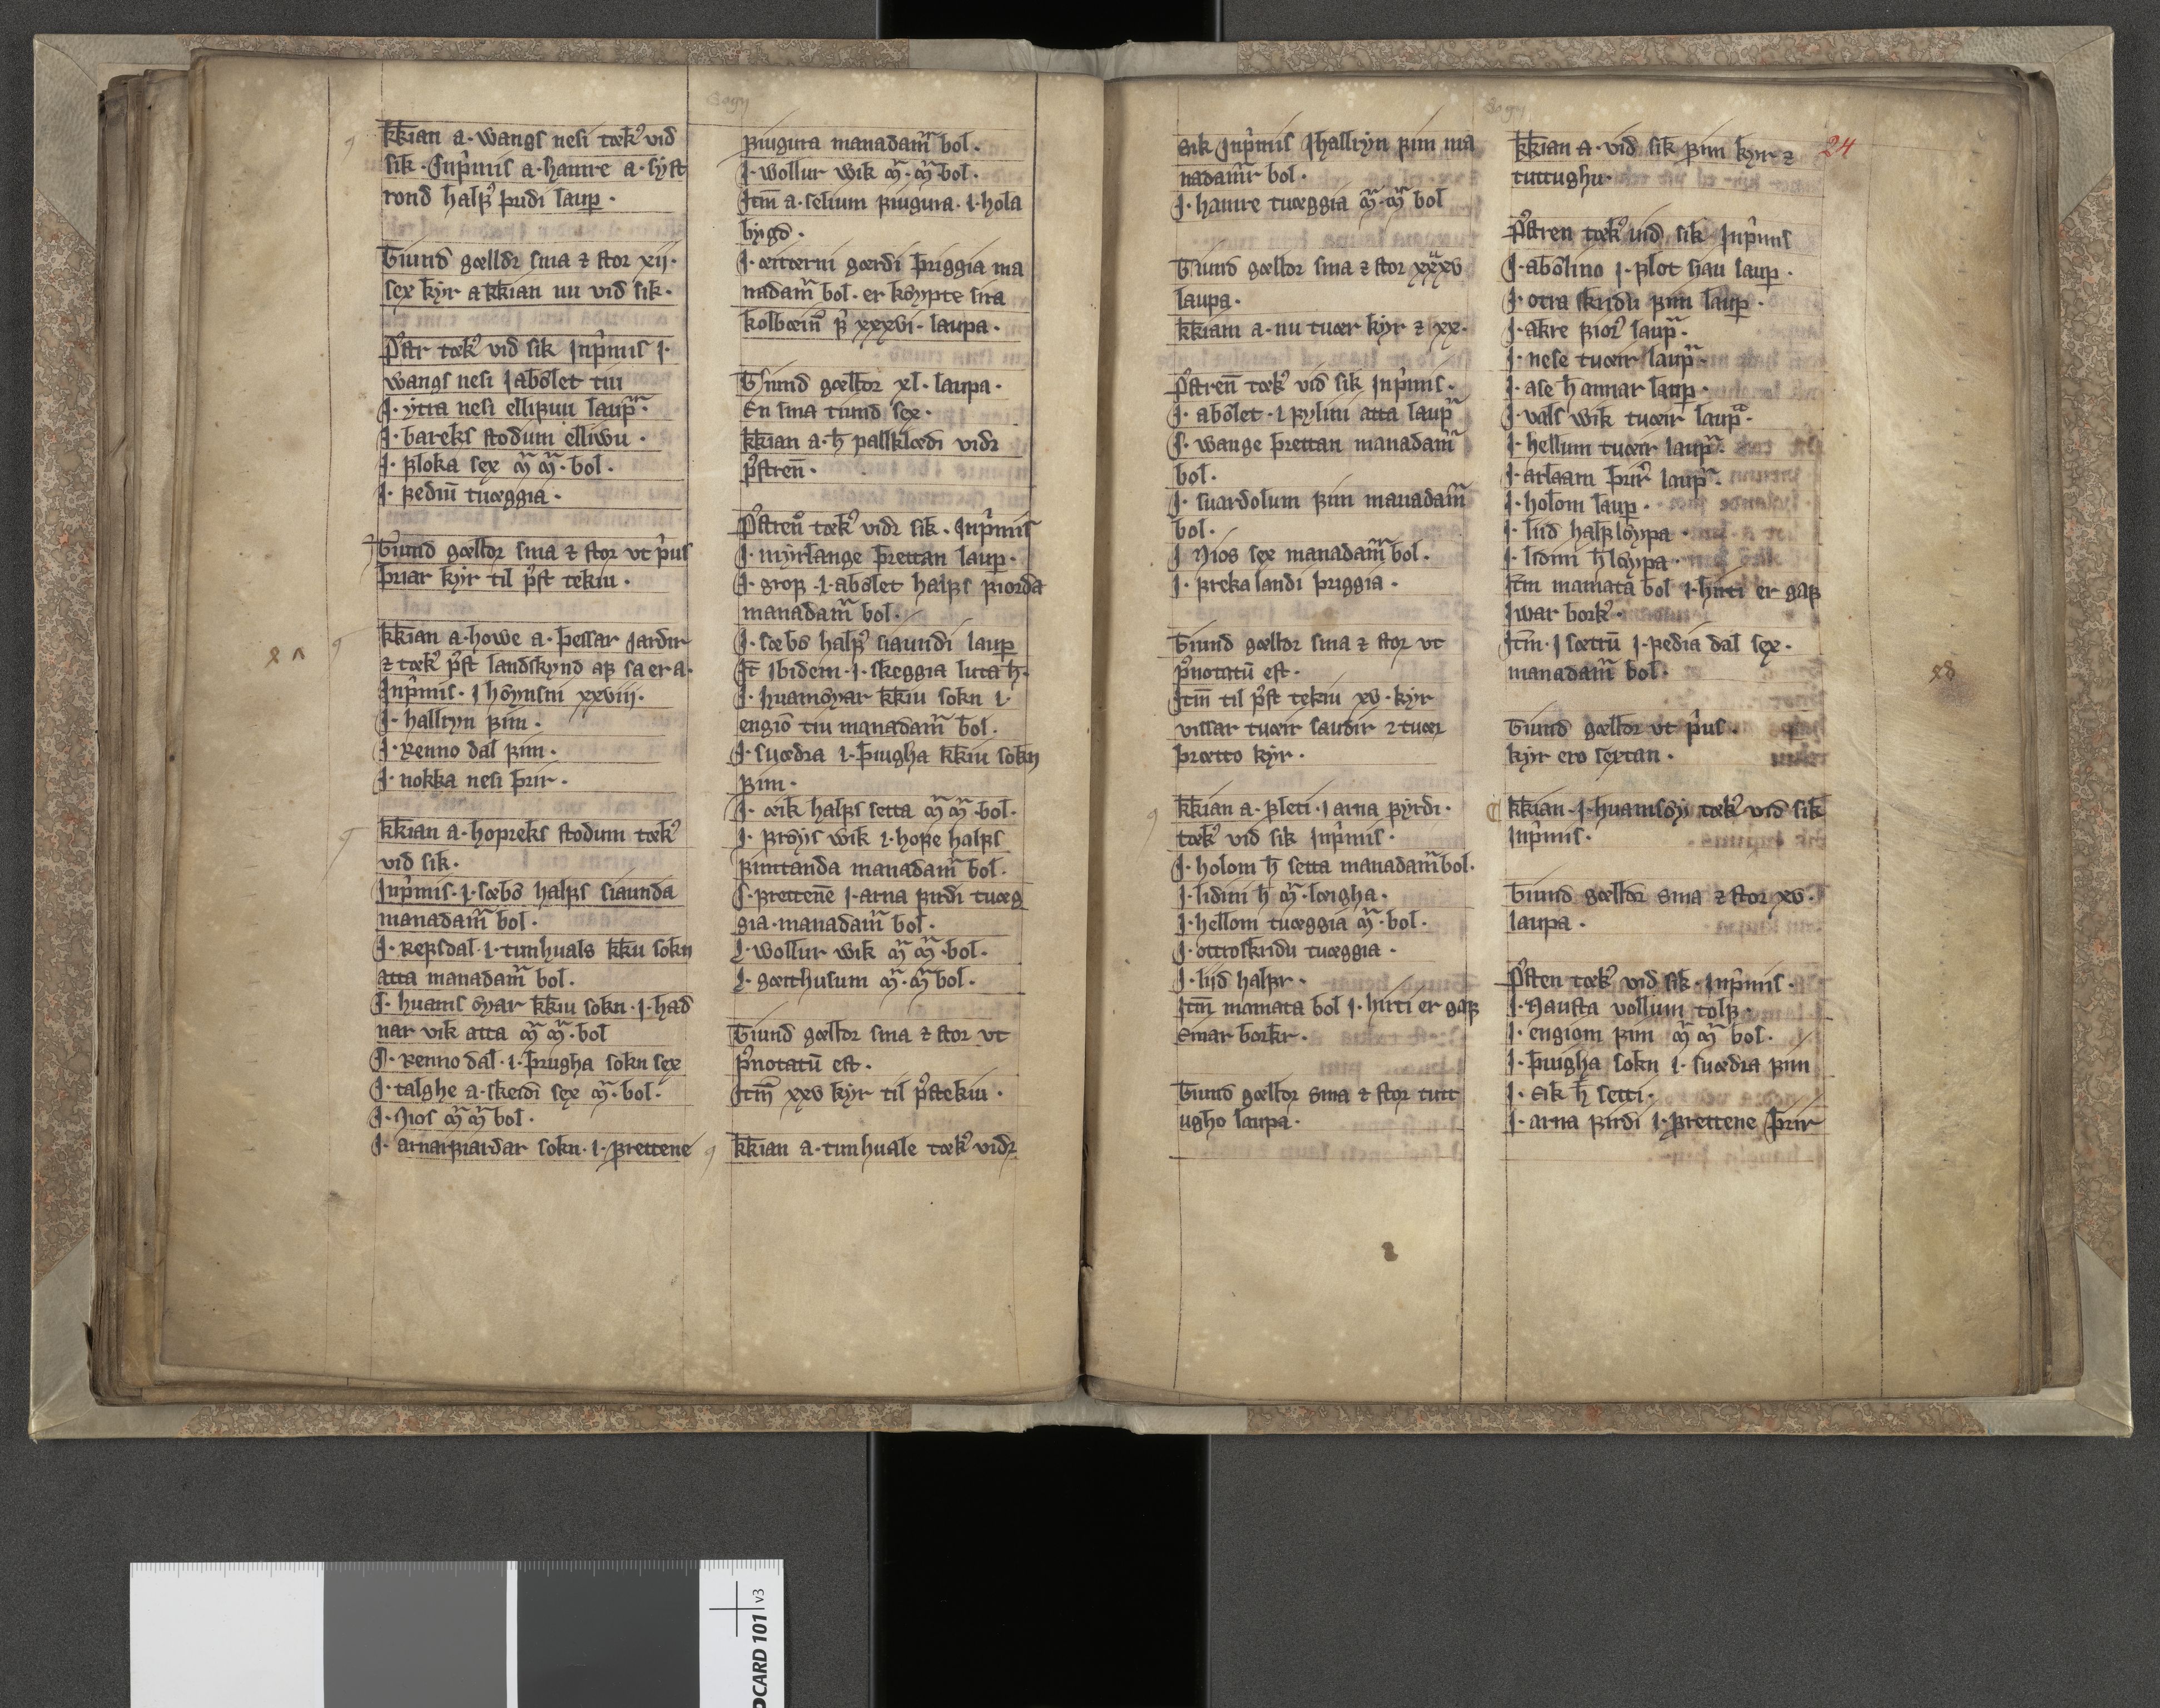 kkian a· wangs nesi tækꝛ vid
sik· Jnpͥmis a· haure a· syst
rond halfꝛ þridi laup·
Tiund gælldꝛ sma ⁊ stor xij·
sex kyr a kkian nu vid sik·
pͤstr tækꝛ vid sik Jnpͥmis j·
wangs nesi j abölet tiu
J· ytra nesi ellifuu laupᷓ·
J· bareks stodum elliwu·
J· floka sex mᷓ mᷓ· bol·
J· fediū tuæggia·
Tiund gælldꝛ sma ⁊ stor vt pͥus
þriar kyr til pͤst tekiu·
kkian a· howe a· þessar jardir
⁊ tækꝛ pͤst landskynd af sa er a·
Jnpͥmis· j höynsini xxviij·
J· hallryn fim·
J· Renno dal fim·
J· nokka nesi þrir·
kkian a· hopreks stodum tækꝛ
vid sik·
Jnpͥmis· j· sæbö halfs siaunda
manadamᷓ bol·
J· Refsdal· j· tunhuals kkiu sokn
atta manadamᷓ bol·
J· huams öyar kkiu sokn· j· had
nar vik atta mᷓ mᷓ· bol
J· Renno dal· j· þrugha sokn sex
J· talghe a· skeidi sex mᷓ· bol·
J· Nios mᷓ mᷓ bol·
J· arnarfiardar sokn· j· frettene
Sogn
fiugura manadamᷓ bol·
J· wollur wik mᷓ· mᷓ bol·
Jtm̄ a· selium fiugura· j· hola
bygd·
J· æitærni gærdi þriggia ma
nadamᷓ bol· er köypte sira
kolbæinꝛ fͥ xxxvi· laupa·
Tiund gælldꝛ xl· laupa·
En sma tiund sex·
kkian a· h̄ pallklædi vidꝛ
pͤstren̄·
pͤstren tækꝛ vidꝛ sik· Jnpͥmis
J· myrlange þrettan laup·
J· grof· j· abölet halfs fiorda
manadamᷓ bol·
J· sæbö halfꝛ siaundi laup
Jt̄ ibidem· j· skeggia luta h̄·
J· huamöyar kkiu sokn j·
engiō tiu manadamᷓ bol·
J· suædra j· þrugha kkiu sokn
fim·
J· æik halfs setta mᷓ mᷓ· bol·
J· fröys wik j· hope halfs
fimtanda manadamᷓ bol·
J· frettene j· arna firdi tuæg
gia· manadamᷓ bol·
J· wollur wik mᷓ mᷓ· bol·
J· gærthusum mᷓ· mᷓ bol·
Tiund gælldꝛ sma ⁊ stor vt
pͤnotatū est·
Jtm̄ xxv kyr til pͤstekiu·
kkian a· tunhuale tækꝛ vidꝛ
Sogn
24
sik Jnpͥmis Jhallryn fim ma
nadamᷓr bol·
J· haure tuæggia mᷓ· mᷓ bol
Tiund gælldꝛ sma ⁊ stor xxxv
laupa·
kkiam a· nu tuær kyr ⁊ xx·
pͤstren̄ tækꝛ vid sik Jnpͥmis·
J· abölet· j fylini atta laupᷓ
J· wange þrettan manadamᷓ
bol·
J· suardolum fim manadamᷓ
bol·
J Nios sex manadamᷓ bol·
J· frekalandi þriggia·
Tiund gælldꝛ sma ⁊ stor vt
pͤnotatū est·
Jtm̄ til pͤst tekiu xv· kyr
vissar tuæir saudir ⁊ tuær
þrætto kyr·
kkian a· fleti· j arna fyrdi·
tækꝛ vid sik Jnpͥmis·
J· holom h̄ setta manadamᷓ bol·
J· lidini h̄ mᷓ· læigha·
J· hellom tuæggia mᷓ· bol·
J· ottroskridu tuæggia·
J· liid halfr·
Jtm̄ mamata bol j· hirti er gaf
Einar borkr·
Tiund gælldꝛ sma ⁊ stor tutt
ugho laupa·
kkian a· vid sik fim kyr ⁊
tuttughu·
pͤstren tækꝛ vid sik· Jnpͥmis
J· abölino j· flot hau laup·
J· otra skridu fim laup·
J· akre fiorꝛ laupᷓ·
J· nese tuæir laupᷓ·
J· ase h̄ annar laup·
J· vals wik tuæir laupᷓ·
J· hellum tuæir laupᷓ·
J· atlaam þrirꝛ laupᷓ·
J· holom laup·
J· liid halflöypa·
J· lidini h̄löypa·
Jtm mamata bol j· hirti er gaf
Jwar borkꝛ·
Jtm̄· j sættū j· fedia dal sex·
manadamᷓ bol·
Tiund gælldꝛ vt pͥus·
kyr ero sextan·
kkian· j· huamsöy tækꝛ vid sik
Jnpͥmis·
Tiund gælldꝛ sma ⁊ stor xv·
laupa·
pͤsten tækꝛ vid sik· Jnpͥmis·
J· Nausta vollum tolf·
J· engiom fim mᷓ mᷓ bol·
J· þrugha sokn j· suædra fim
J· Eik h̄ setti·
J· arna firdi j· frettene þrir